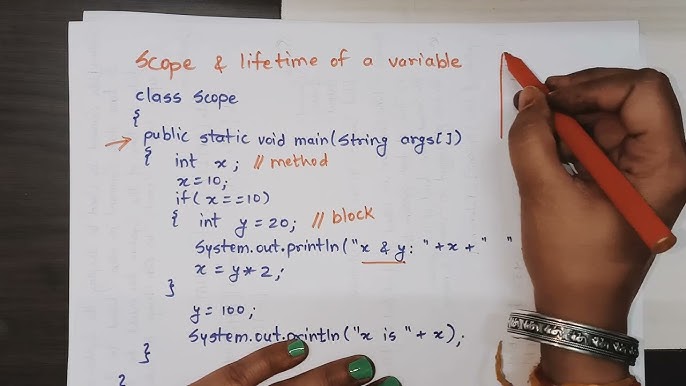 Scope & lifetime of a variable
class Scope
{
public static void main(String args[])
{ int x; // method
x=10;
if(x==10)
{ int y=20; // block
System.out.println("x & y: "+x+" "
x = y*2;
}
y=100;
System.out.println("x is "+x);
}
}